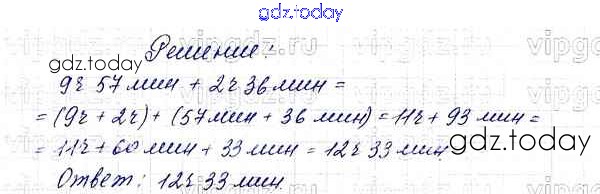 gdz.today
Решение:
gdz.today
9ч 57 мин + 2ч 36 мин =
= (9ч + 2ч) + (57 мин + 36 мин) = 11ч + 93 мин =
= 11ч + 60 мин + 33 мин = 12ч 33 мин
gdz.today
Ответ: 12ч 33 мин